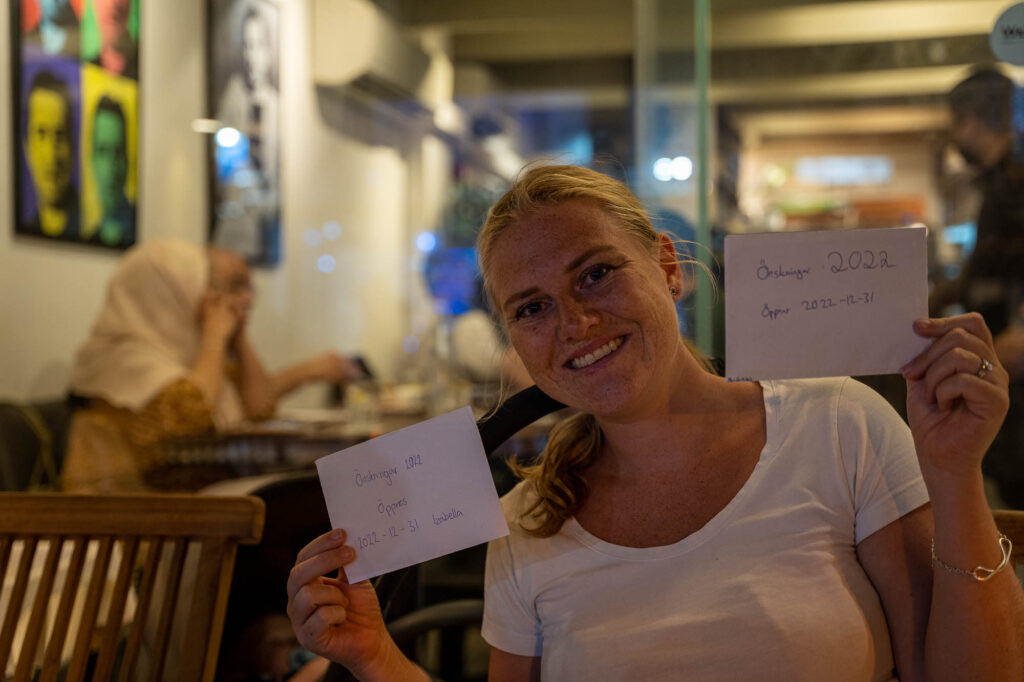 Önskningar 2022
Öppnas
2022-12-31 Izabella
Önskningar 2022
Öppnar 2022-12-31